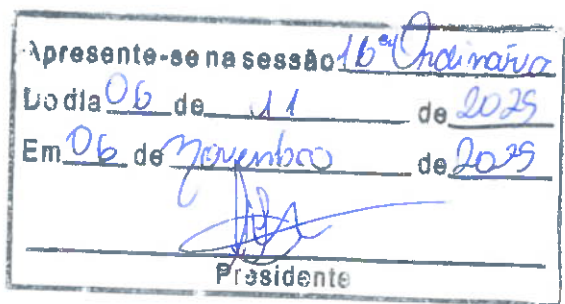 Apresente-se na sessão 16ª Ordinária
Do dia 06 de 11 de 2025
Em 06 de novembro de 2025
Presidente